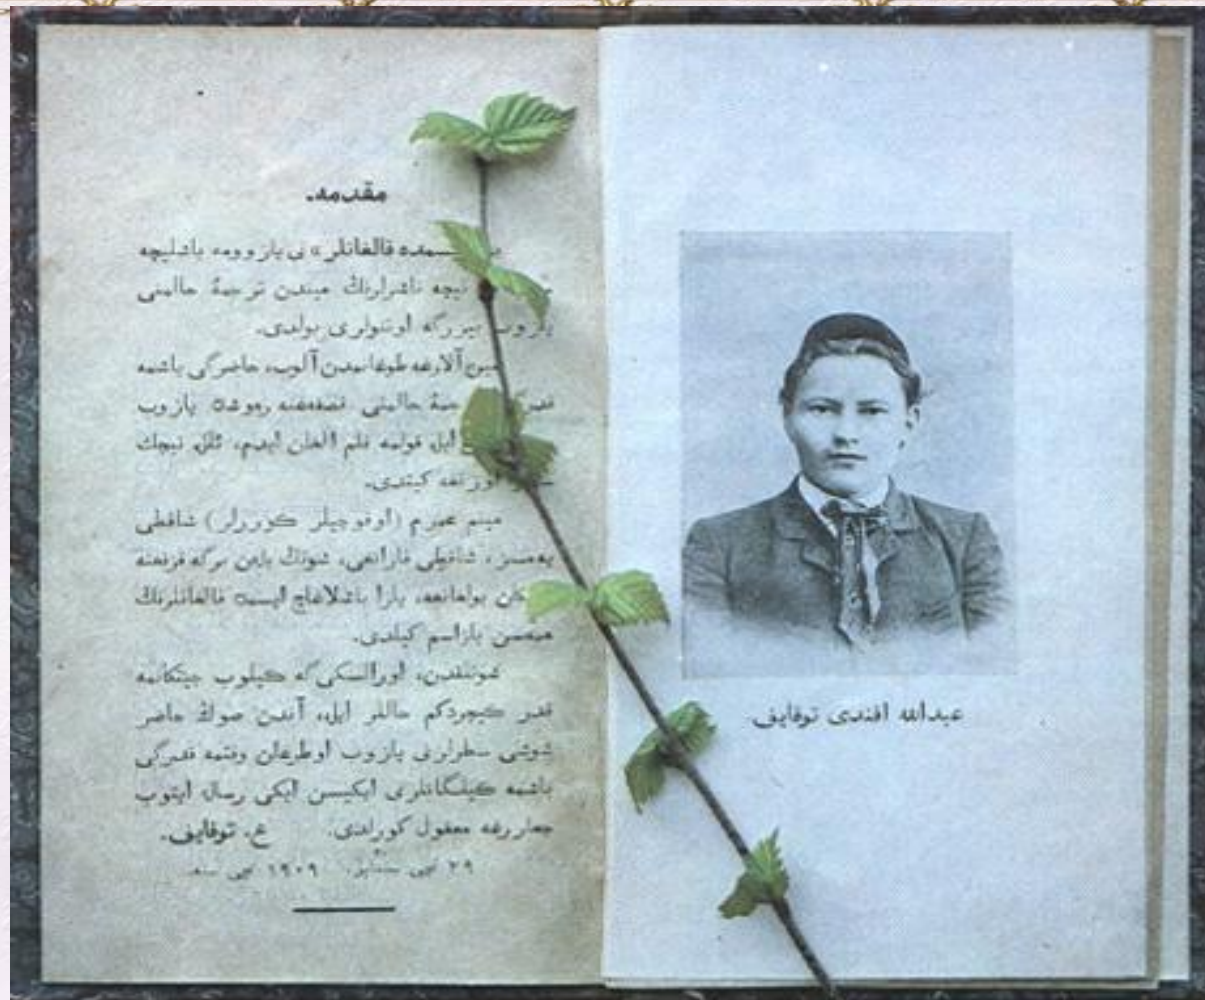 مقدمه.
قالغانلر» نی یازوومه باشلیچه
نیچه ناشرلرنڭ میندن ترجمۀ حالمنی
بیزرگه اوتنولری بولدی.
مین آلارغه طوغانمدن آلوب، حاضرگی باشمه
حالمنی یازوب
قولمه قلم آلغان ایدم،
کیتدی.
مینم عمرم (اوقوچیلر کوررلر) شاقطی
یه‌مسز، شاقطی قارانغی، شونڭ بلەن برگه
بولغانغه، یازا باشلاغاچ ایسمده قالغانلرنڭ
همه‌سن یازاسم کیلدی.
شوننلدن، اورالسکی گه کیلوب جیتکانمه
قدر کیچردکم حاللر ایله، آندن صوڭ حاضر
شوشی سطرلرنی یازوب اوطرغان وقتمه قدرگی
باشمه کیلگانلری ایکیسن ایکی رساله ایتوب
معقول کورلدی. ع. توقایف.
۲۹ نچی سنتابر. ۱۹۰۹ نچی سنه.
عبدالله افندی توقایف